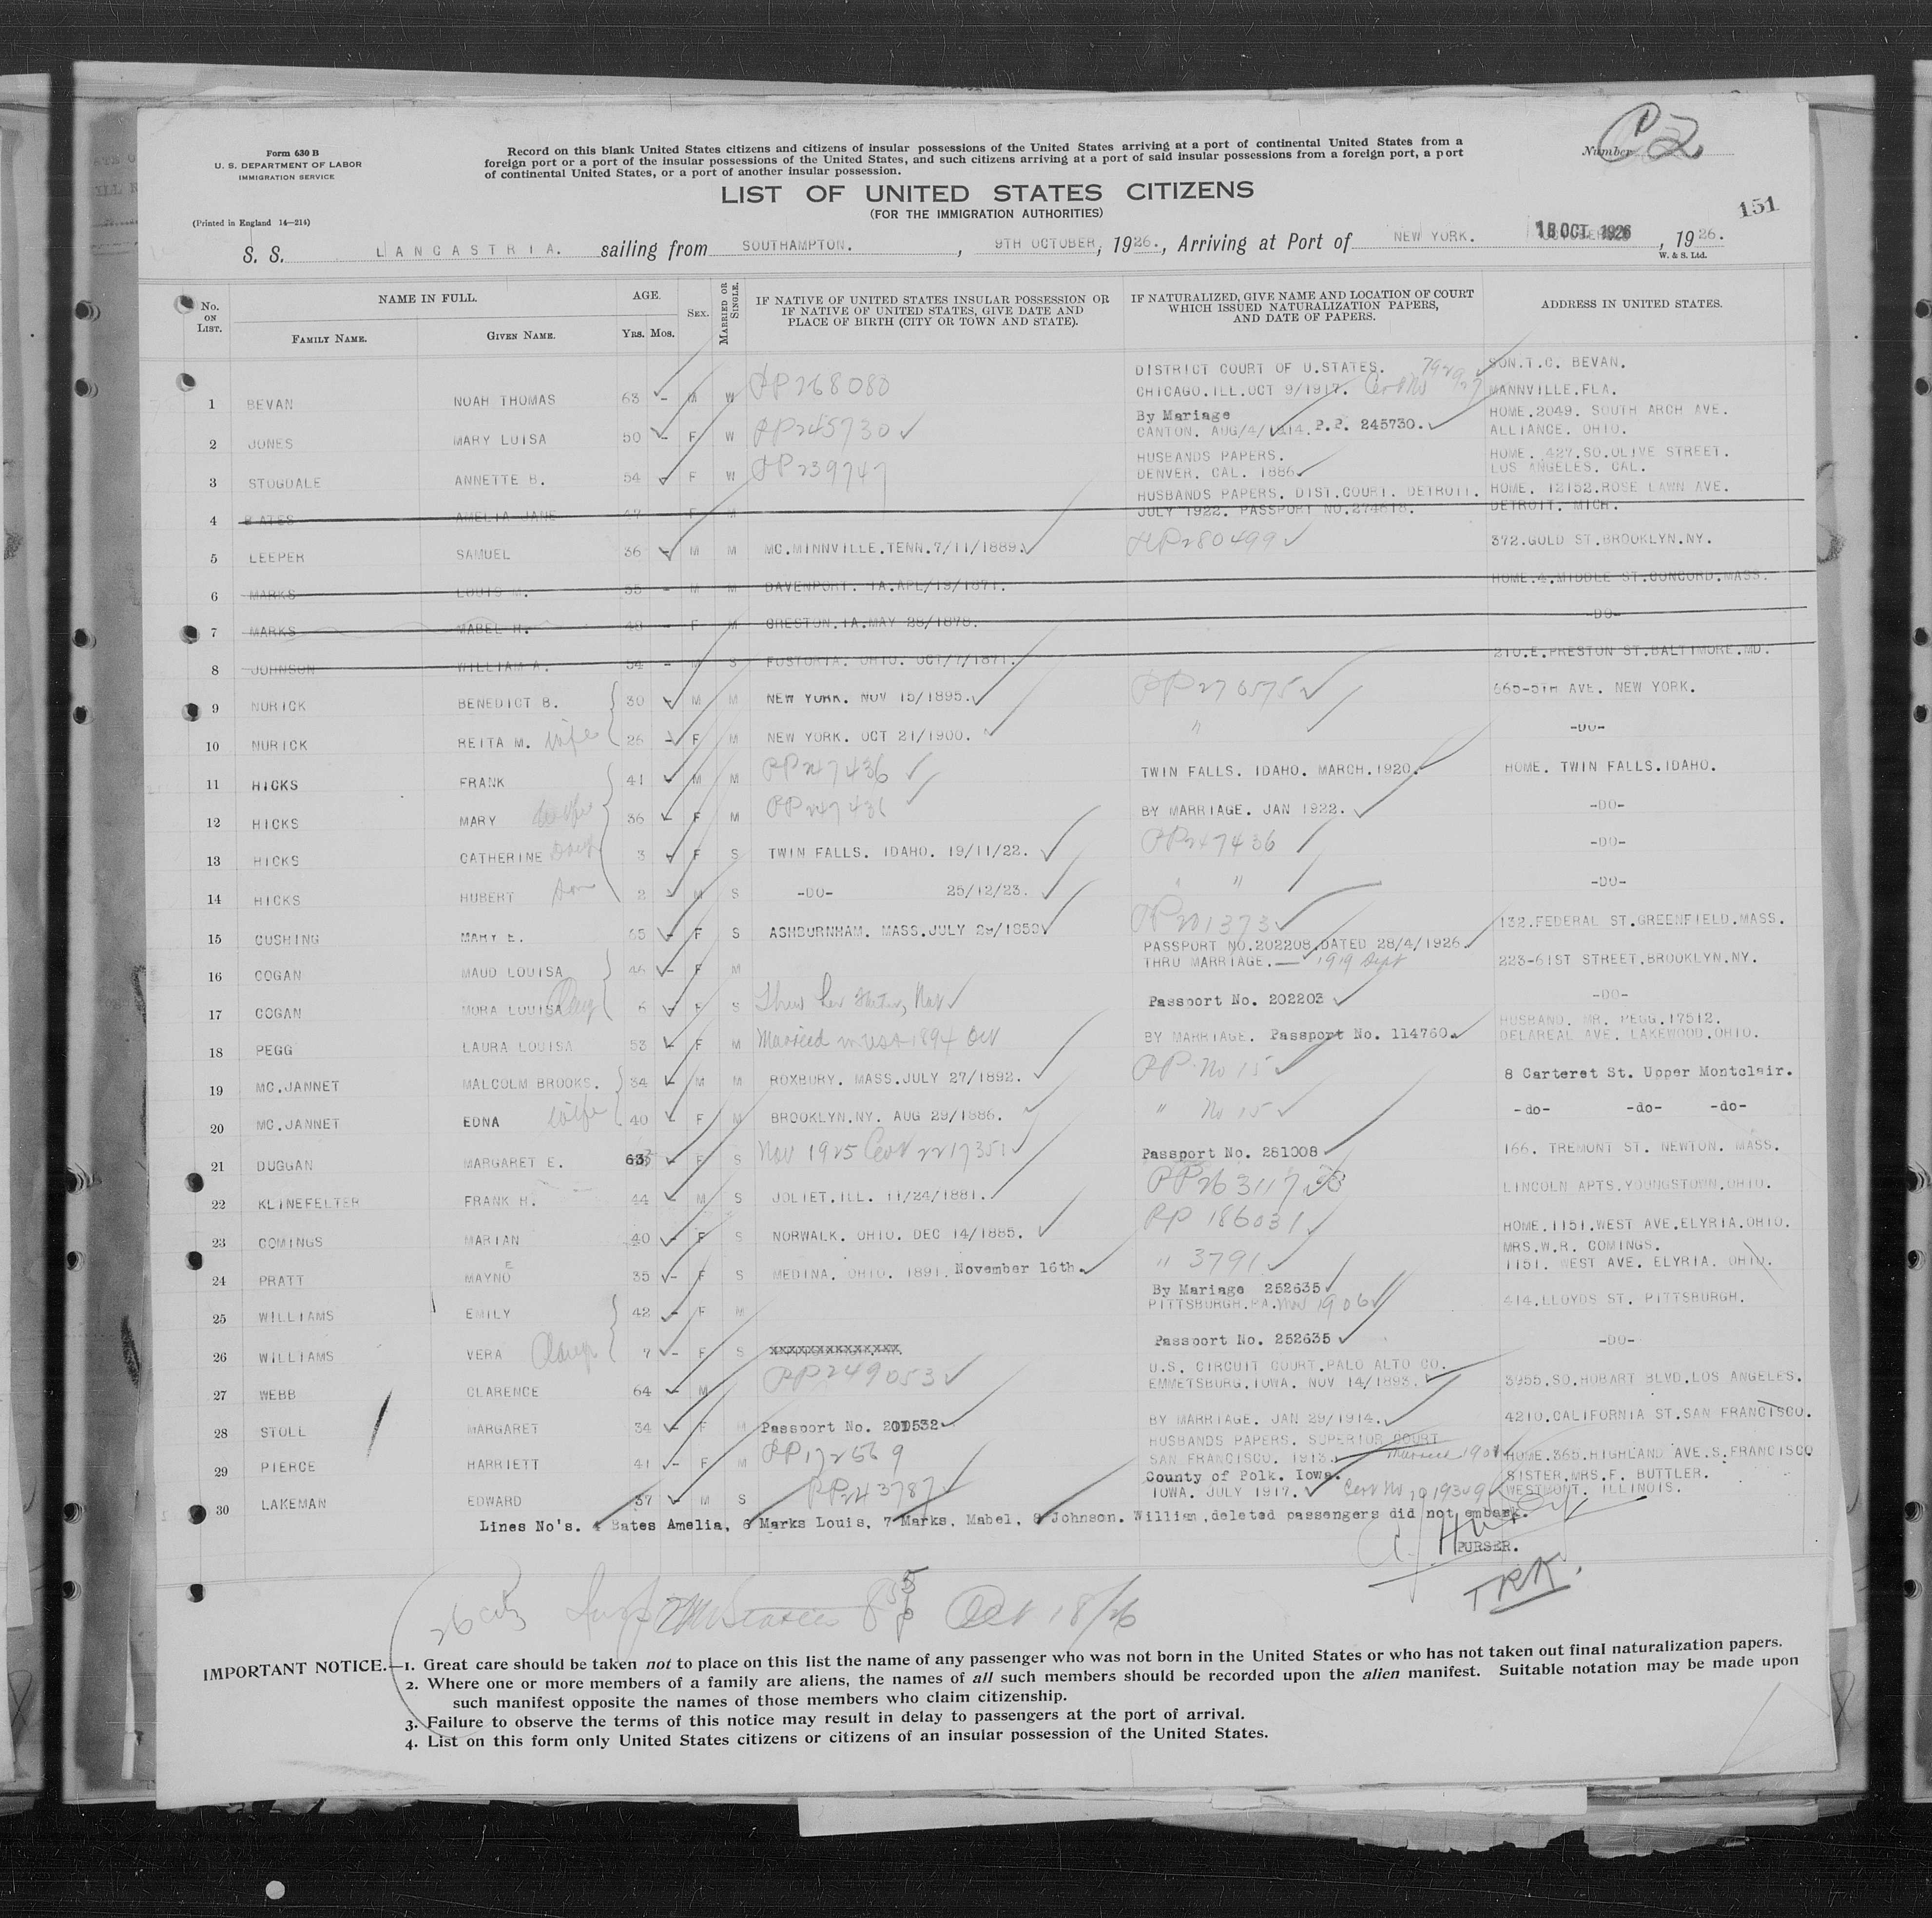 Form 630 B
U. S. DEPARTMENT OF LABOR
IMMIGRATION SERVICE
(Printed in England 14—214)
Record on this blank United States citizens and citizens of insular possessions of the United States arriving at a port of continental United States from a
foreign port or a port of the insular possessions of the United States, and such citizens arriving at a port of said insular possessions from a foreign port, a port
of continental United States, or a port of another insular possession.
Number
151
LIST OF UNITED STATES CITIZENS
(FOR THE IMMIGRATION AUTHORITIES)
S. S. LANCASTRIA. sailing from SOUTHAMPTON. , 9TH OCTOBER, 1926., Arriving at Port of NEW YORK. 18 OCT. 1926 , 1926.
W. & S. Ltd.
No. ON LIST. NAME IN FULL. AGE. SEX. MARRIED OR SINGLE. IF NATIVE OF UNITED STATES INSULAR POSSESSION OR IF NATIVE OF UNITED STATES, GIVE DATE AND PLACE OF BIRTH (CITY OR TOWN AND STATE). IF NATURALIZED, GIVE NAME AND LOCATION OF COURT WHICH ISSUED NATURALIZATION PAPERS, AND DATE OF PAPERS. ADDRESS IN UNITED STATES.
FAMILY NAME. GIVEN NAME. Yrs. Mos.
DISTRICT COURT OF U.STATES. SON.T.C. BEVAN.
1 BEVAN NOAH THOMAS 63 - M W PP268080 CHICAGO.ILL.OCT 9/1917. Cert No MANNVILLE.FLA.
By Mariage HOME.2049. SOUTH ARCH AVE.
2 JONES MARY LUISA 50 - F W PP245730 CANTON. AUG/4/1914. P.P. 245730. ALLIANCE. OHIO.
HUSBANDS PAPERS. HOME. 427.SO.OLIVE STREET.
3 STOGDALE ANNETTE B. 54 F W PP239747 DENVER. CAL. 1886 LOS ANGELES. CAL.
HUSBANDS PAPERS. DIST.COURT. DETROIT. HOME. 12152.ROSE LAWN AVE.
4 BATES AMELIA JANE 47 F M JULY 1922. PASSPORT NO.274818. DETROIT. MICH.
5 LEEPER SAMUEL 36 - M M MC.MINNVILLE.TENN.7/11/1889. PP280499 372.GOLD ST.BROOKLYN.NY.
6 MARKS LOUIS M. 55 - M M DAVENPORT. IA.APL/13/1871. HOME.4.MIDDLE ST.CONCORD.MASS.
7 MARKS MABEL H. 48 - F M CRESTON.IA.MAY 28/1878. -DO-
8 JOHNSON WILLIAM A. 54 - M S FOSTORIA. OHIO. OCT/7/1871. 210.E.PRESTON ST.BALTIMORE.MD.
9 NURICK BENEDICT B. 30 - M M NEW YORK. NOV 15/1895. PP270575 665-5TH AVE. NEW YORK.
10 NURICK REITA M. Wife 25 - F M NEW YORK. OCT 21/1900. " -DO-
11 HICKS FRANK 41 M M PP247436 TWIN FALLS. IDAHO. MARCH.1920. HOME. TWIN FALLS.IDAHO.
12 HICKS MARY Wife 36 - F M PP247436 BY MARRIAGE. JAN 1922. -DO-
13 HICKS CATHERINE Daug 3 - F S TWIN FALLS. IDAHO. 19/11/22. PP247436 -DO-
14 HICKS HUBERT Son 2 M S -DO- 25/12/23. " " -DO-
15 CUSHING MARY E. 65 - F S ASHBURNHAM. MASS.JULY 29/1859 PP201373 132.FEDERAL ST.GREENFIELD.MASS.
PASSPORT NO.202208.DATED 28/4/1926.
16 COGAN MAUD LOUISA 46 - F M THRU MARRIAGE. — 1919 Sept 223-61ST STREET.BROOKLYN.NY.
17 COGAN MORA LOUISA Daug 6 - F S Thru her Father, Nat Passport No. 202203 -DO-
HUSBAND. MR. PEGG.17512.
18 PEGG LAURA LOUISA 53 - F M Married in USA 1894 Oct BY MARRIAGE. Passport No. 114760. DELAREAL AVE. LAKEWOOD.OHIO.
19 MC.JANNET MALCOLM BROOKS. 34 - M M ROXBURY. MASS.JULY 27/1892. PP No 15 8 Carteret St. Upper Montclair.
20 MC.JANNET EDNA Wife 40 - F M BROOKLYN.NY. AUG 29/1886. " No 15 -do- -do- -do-
21 DUGGAN MARGARET E. 63 - F S Nov 1925 Cert 2217351 Passport No. 281008 166. TREMONT ST. NEWTON. MASS.
22 KLINEFELTER FRANK H. 44 - M S JOLIET.ILL. 11/24/1881. PP263117 LINCOLN APTS.YOUNGSTOWN.OHIO.
23 COMINGS MARIAN 40 - F S NORWALK. OHIO. DEC 14/1885. PP 186031 HOME.1151.WEST AVE.ELYRIA.OHIO.
MRS.W.R. COMINGS.
24 PRATT MAYNE 35 - F S MEDINA. OHIO. 1891. November 16th. " 3791 1151. WEST AVE. ELYRIA. OHIO.
By Mariage 252635
25 WILLIAMS EMILY 42 - F M PITTSBURGH.PA. Nov 1906 414.LLOYDS ST. PITTSBURGH.
26 WILLIAMS VERA Daug 7 - F S XXXXXXXXXXXXXXX Passport No. 252635 -DO-
U.S. CIRCUIT COURT.PALO ALTO CO.
27 WEBB CLARENCE 64 - M PP249053 EMMETSBURG.IOWA. NOV 14/1893. 3955.SO.HOBART BLVD.LOS ANGELES.
28 STOLL MARGARET 34 - F M Passport No. 201532 BY MARRIAGE. JAN 29/1914. 4210.CALIFORNIA ST.SAN FRANCISCO.
HUSBANDS PAPERS. SUPERIOR COURT
29 PIERCE HARRIETT 41 - F M PP172569 SAN FRANCISCO. 1913. married 1901 HOME.365.HIGHLAND AVE.S.FRANCISCO
County of Polk. Iowa. SISTER.MRS.F. BUTTLER.
30 LAKEMAN EDWARD 37 - M S PP243787 IOWA. JULY 1917. Cert No WESTMONT. ILLINOIS.
Lines No's. 4 Bates Amelia, 6 Marks Louis, 7 Marks, Mabel, 8 Johnson. William, deleted passengers did not embark.
PURSER.
TRK.
26 Oct 18/26
IMPORTANT NOTICE.—1. Great care should be taken not to place on this list the name of any passenger who was not born in the United States or who has not taken out final naturalization papers.
2. Where one or more members of a family are aliens, the names of all such members should be recorded upon the alien manifest. Suitable notation may be made upon
such manifest opposite the names of those members who claim citizenship.
3. Failure to observe the terms of this notice may result in delay to passengers at the port of arrival.
4. List on this form only United States citizens or citizens of an insular possession of the United States.